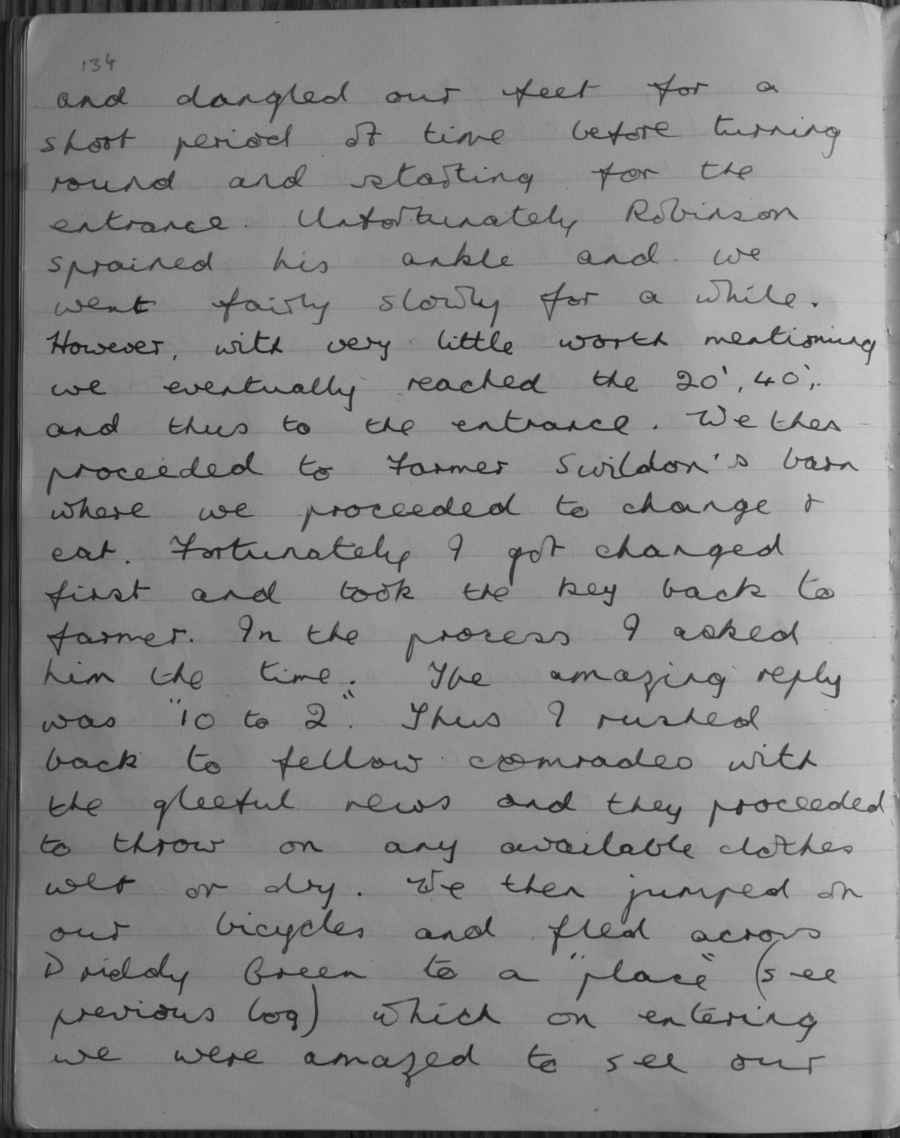 134
and dangled our feet for a
short period of time before turning
round and starting for the
entrance. Unfortunately Robinson
sprained his ankle and we
went fairly slowly for a while.
However, with very little worth mentioning
we eventually reached the 20', 40',
and thus to the entrance. We then
proceeded to Farmer Swildon's barn
where we proceeded to change &
eat. Fortunately I got changed
first and took the key back to
farmer. In the process I asked
him the time. The amazing reply
was "10 to 2". Thus I rushed
back to fellow comrades with
the gleeful news and they proceeded
to throw on any available clothes
wet or dry. We then jumped on
our bicycles and fled across
Priddy Green to a "place" (see
previous log) which on entering
we were amazed to see our